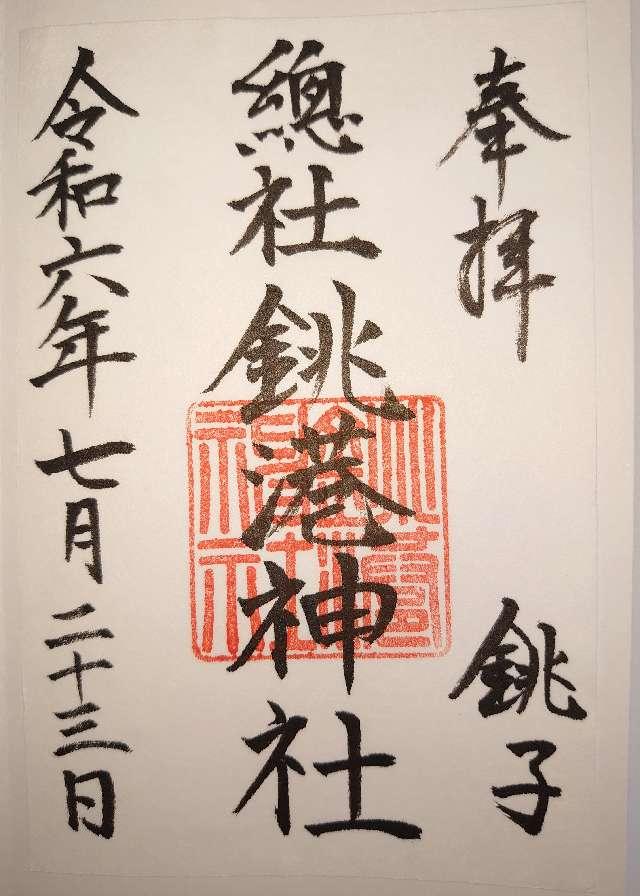 奉拝
銚子
總社銚港神社
令和六年七月二十三日